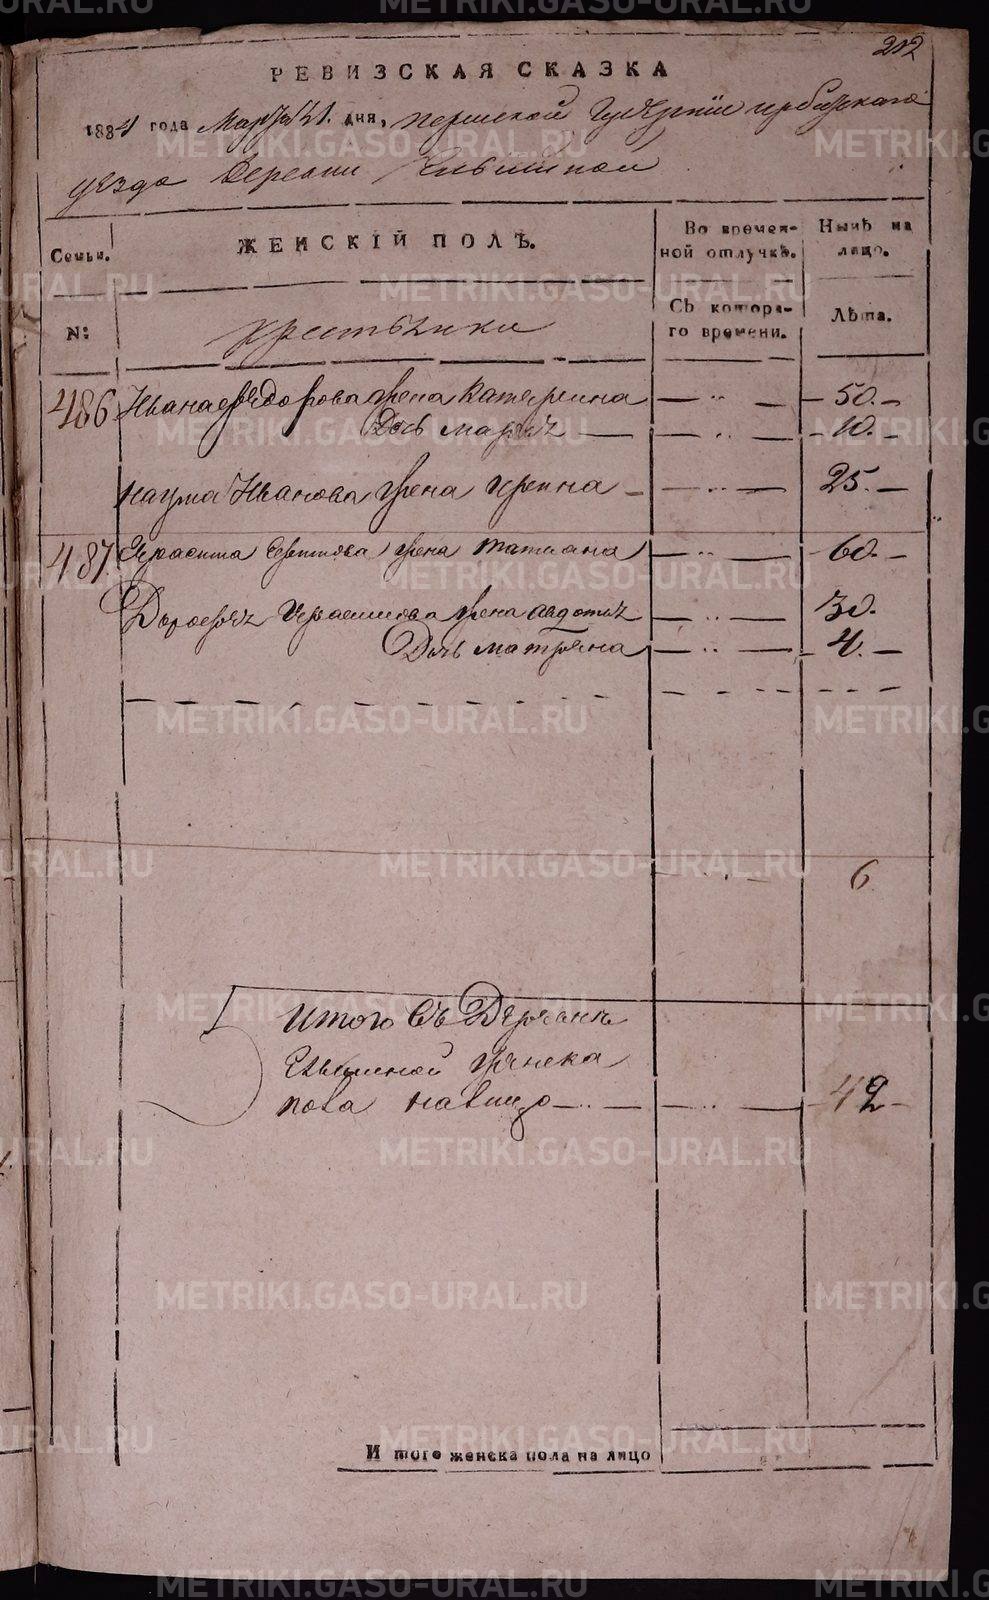 212
РЕВИЗСКАЯ СКАЗКА
1834 года Марта 21. дня, пермской Губернии ирбитского
уезда деревни
Семьи. ЖЕНСКІЙ ПОЛЪ. Во времен-ной отлучкѣ. Нынѣ на лицо.
№: крестьянки Съ которa-го времени. Лѣта.
486 Ивана Федорова жена Катерина — „ — 50. —
Дочь Марья — „ — 10. —
Наума Иванова жена Ирина — „ — 25. —
487. Герасима жена татиана — „ — 60. —
Дорофея Герасимова жена авдотья — „ — 30.
Дочь матрена — „ — 4. —
6
Итого Въ Деревне
женска
пола налицо — „ — 42 —
Итого женска пола на лицо
METRIKI.GASO-URAL.RU